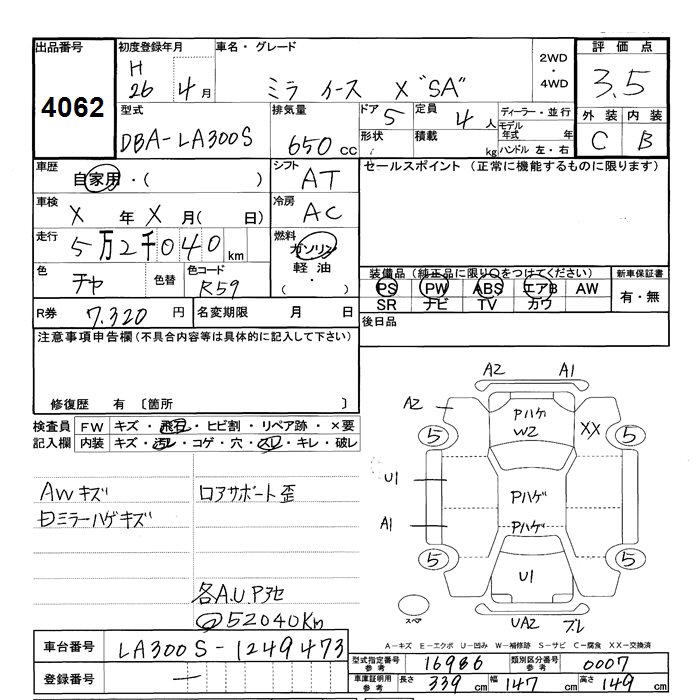 出品番号 初度登録年月 車名・グレード 評価点
4062 H 26 4月 ミラ イース X "SA" 2WD・4WD 3.5
外装 内装
C B
型式 排気量 ドア 定員 ディーラー・並行
DBA-LA300S 650 cc 5 4人 モデル年式 年
形状 積載 kg ハンドル 左・右
車歴 シフト セールスポイント (正常に機能するものに限ります)
自家用・( ) AT
車検 冷房
X 年 X 月( 日) AC
走行 燃料
5万2千040 km ガソリン
軽油
・
( )
色 色替 色コード
チャ R59
装備品 (純正品に限り○をつけてください) 新車保証書
PS PW ABS エアB AW 有・無
SR ナビ TV カワ
R券 7.320 円 名変期限 月 日
後日品
注意事項申告欄(不具合内容等は具体的に記入して下さい)
修復歴 有 〔箇所 〕
検査員 FW キズ・飛石・ヒビ割・リペア跡・×要
記入欄 内装 キズ・汚レ・コゲ・穴・スレ・キレ・破レ
AWキズ ロアサポート歪
ミラーハゲキズ
52040Km
A2 A1
A2 Pハゲ W2 XX
5 5
U1 Pハゲ
A1 Pハゲ
5 5
U1
スペア UA2 ズレ
A-キズ E-エクボ U-凹み W-補修跡 S-サビ C-腐食 XX-交換済
車台番号 LA300S-1249473
登録番号 —
型式指定番号 参考 16986 類別区分番号 参考 0007
車庫証明用 参考 長さ 339 cm 幅 147 cm 高さ 149 cm